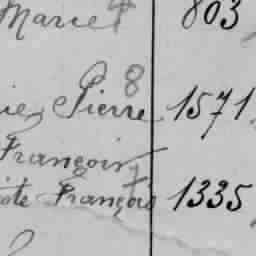 Marcel 803
8
Pierre 1571
François
François 1335